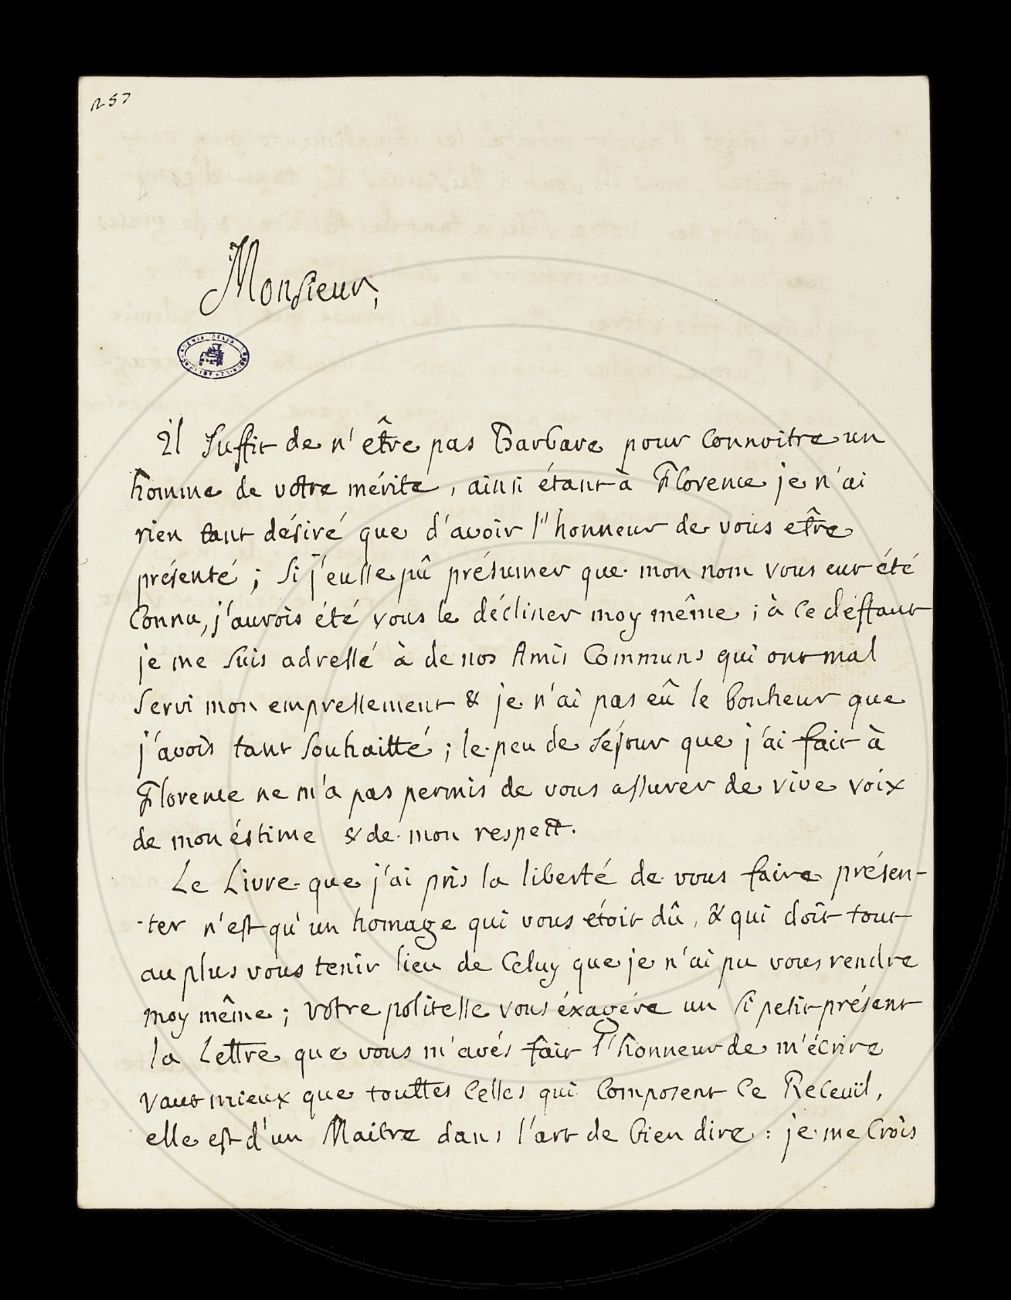 257
Monsieur,
Il Suffit de n'être pas Barbare pour connoitre un
homme de votre mérite, ainsi étant à Florence je n'ai
rien tant désiré que d'avoir l'honneur de vous etre
présenté ; Si j'eusse pû présumer que mon nom vous eut été
Connu, j'aurois été vous le décliner moy même ; à ce deffaut
je me suis adressé à de nos Amis Communs qui ont mal
Servi mon empressement & je n'ai pas eû le bonheur que
j'avois tant souhaitté ; le peu de séjour que j'ai fait à
Florence ne m'a pas permis de vous assurer de vive voix
de mon éstime & de mon respect.
Le Livre que j'ai pris la liberté de vous faire présen-
-ter n'est qu'un homage qui vous étoit dû, & qui doit tout
au plus vous tenir lieu de Celuy que je n'ai pu vous rendre
moy même ; votre politesse vous éxagére un si petit présent
la Lettre que vous m'avés fait l'honneur de m'écrire
vaut mieux que touttes Celles qui Composent Ce Receuïl,
elle est d'un Maitre dans l'art de bien dire : je me Crois